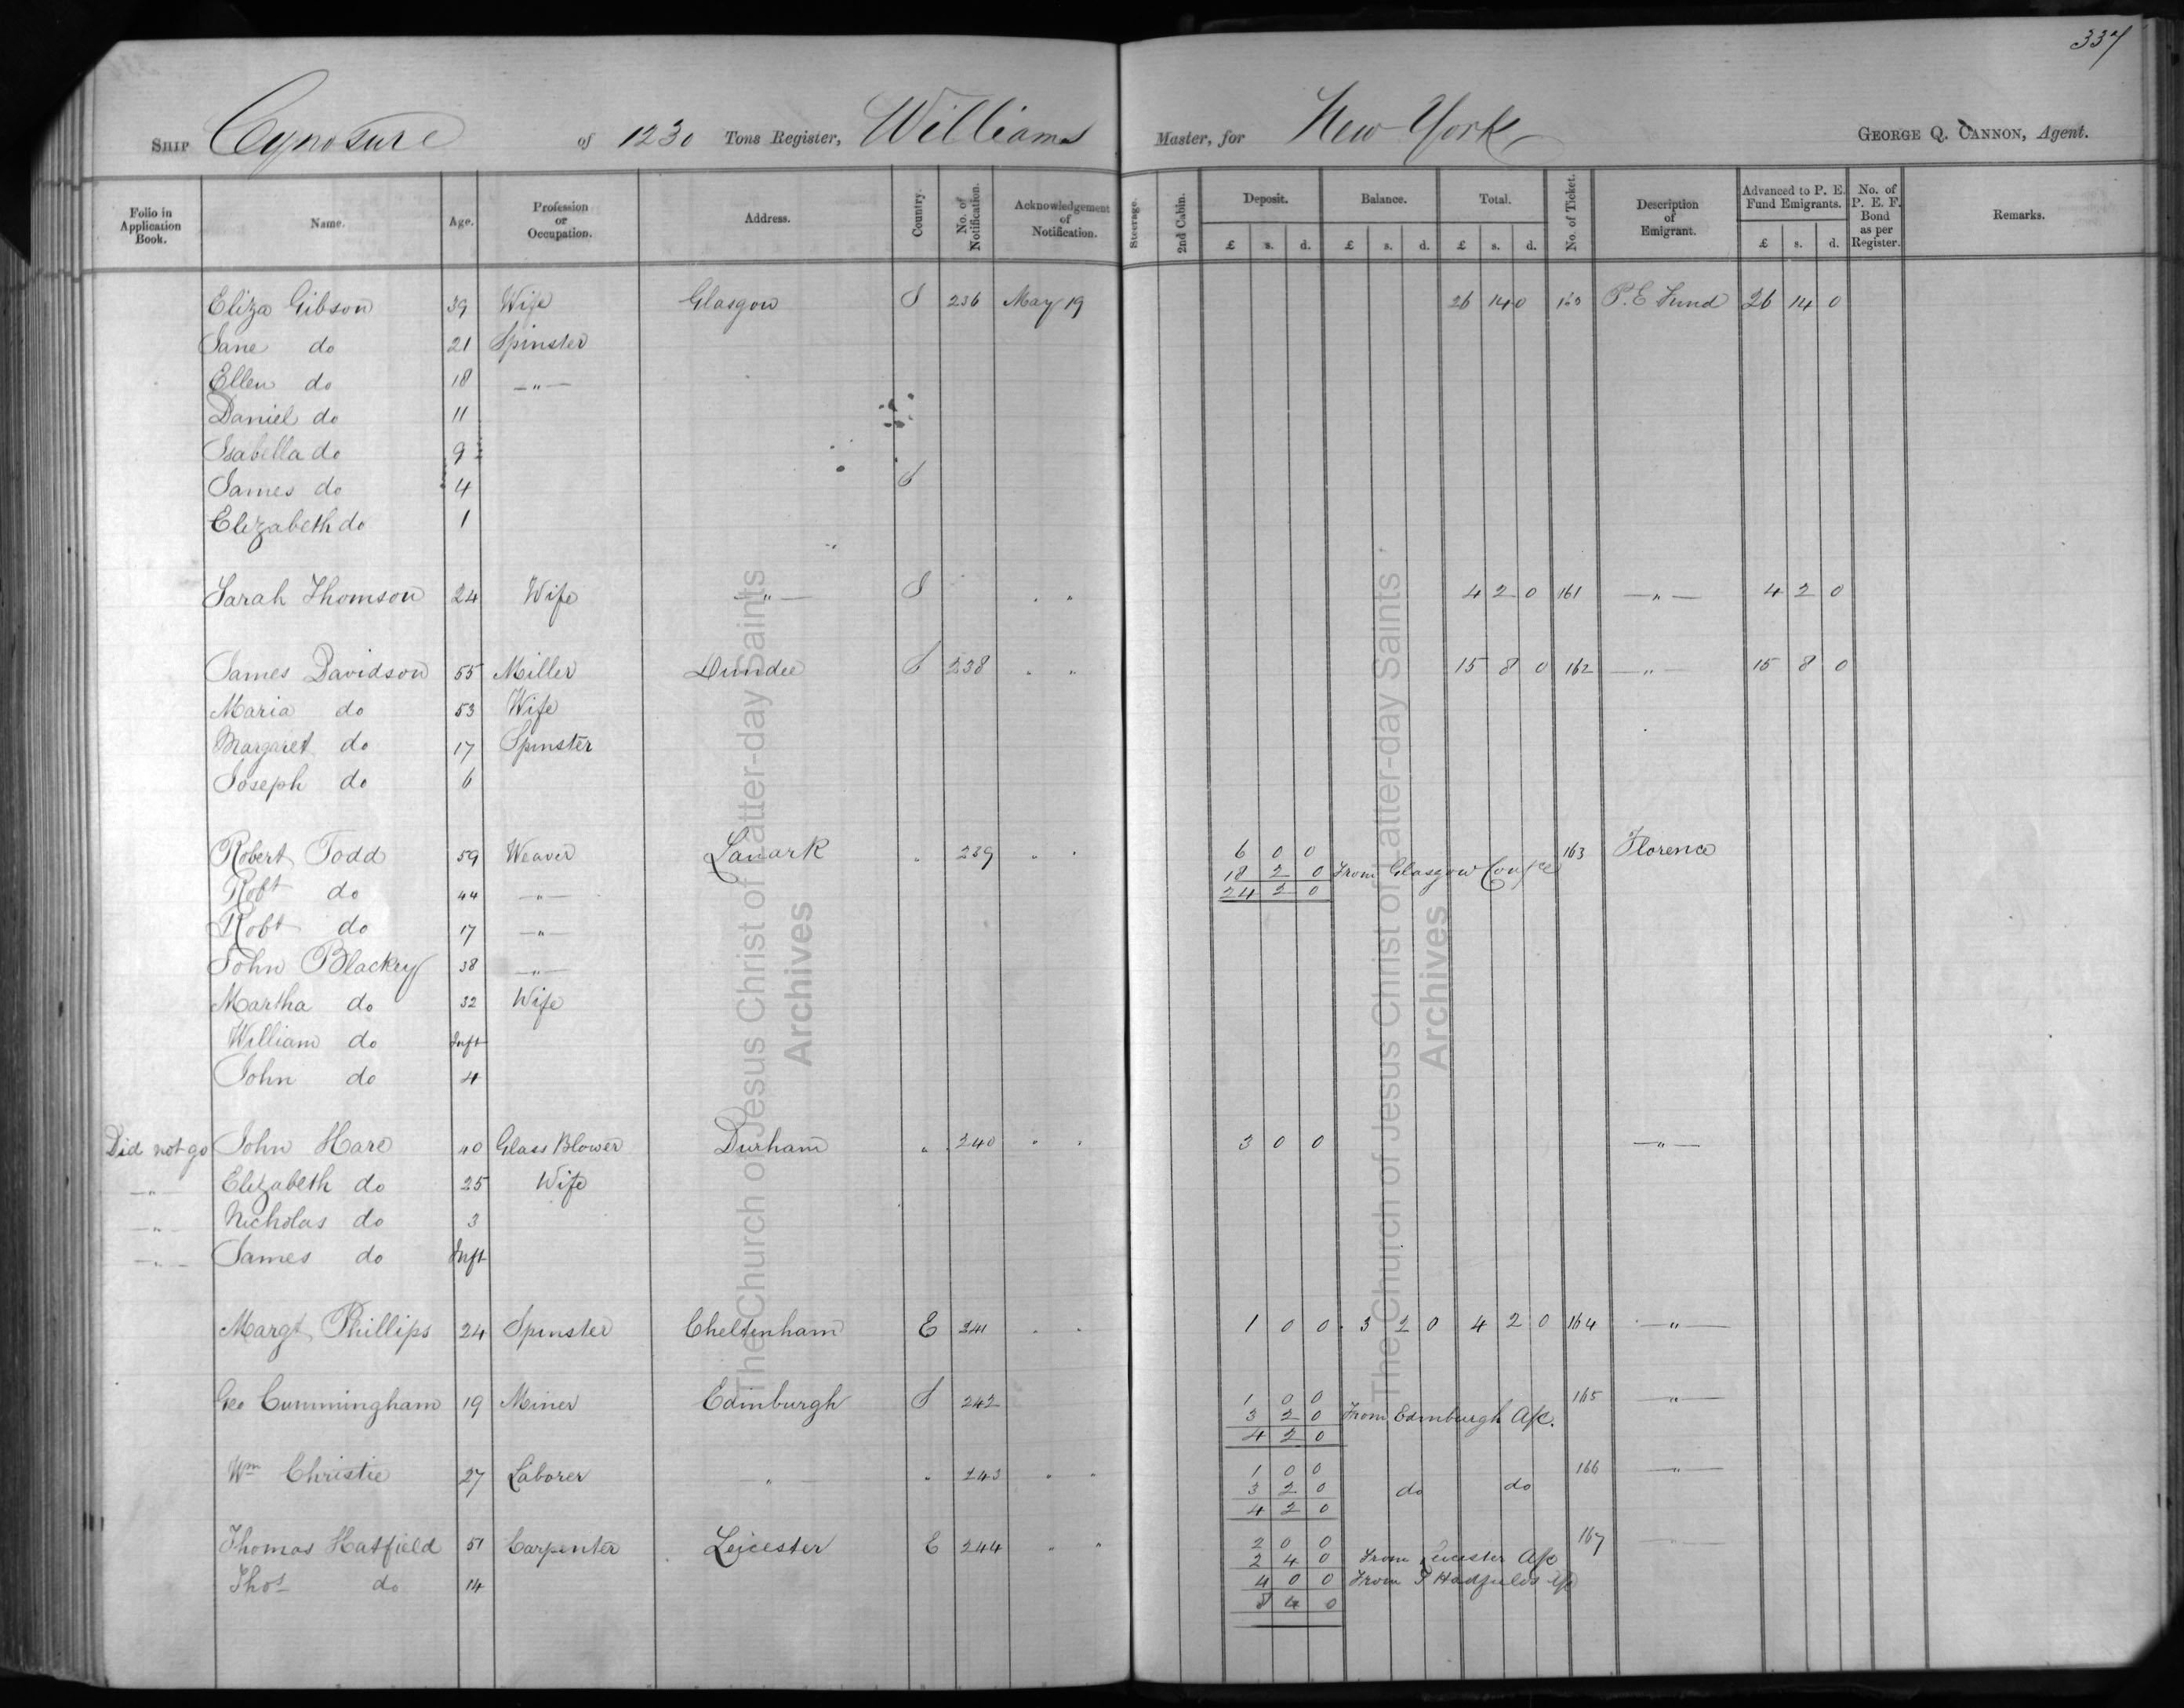 337
SHIP Cynosure of 1230 Tons Register, Williams Master, for New York GEORGE Q. CANNON, Agent.
Folio in Application Book. Name. Age. Profession or Occupation. Address. Country. No. of Notification. Acknowledgement of Notification. Steerage. 2nd Cabin. Deposit. Balance. Total. No. of Ticket. Description of Emigrant. Advanced to P. E. Fund Emigrants. No. of P. E. F. Bond as per Register. Remarks.
£ s. d. £ s. d. £ s. d. £ s. d.
Eliza Gibson 39 Wife Glasgow S 236 May 19 26 14 0 P. E Fund 26 14 0
Jane do 21 Spinster
Ellen do 18 — " —
Daniel do 11
Isabella do 9
James do 4 S
Elizabeth do 1
Sarah Thomson 24 Wife — " — S " " 4 2 0 161 — " — 4 2 0
James Davidson 55 Miller Dundee S 238 " " 15 8 0 162 — " — 15 8 0
Maria do 53 Wife
Margaret do 17 Spinster
Joseph do 6
Robert Todd 59 Weaver Lanark " 239 " " 6 0 0 163 Florence
18 2 0 From Glasgow Confce
Robt do 44 — " — 24 2 0
Robt do 17 — " —
John Blackey 38 — " —
Martha do 32 Wife
William do Inft
John do 4
Did not go John Hare 40 Glass Blower Durham " 240 " " 3 0 0 — " —
— " — Elizabeth do 25 Wife
— " — Nicholas do 3
— " — James do Inft
Margt Phillips 24 Spinster Cheltenham E 241 " " 1 0 0 3 2 0 4 2 0 164 — " —
Geo Cunningham 19 Miner Edinburgh S 242 1 0 0 165 — " —
3 2 0 From Edinburgh A/c.
4 2 0
Wm Christie 27 Laborer — " — " 243 " " 1 0 0 166 — " —
3 2 0 do do
4 2 0
Thomas Hatfield 51 Carpenter Leicester E 244 " " 2 0 0 167 — " —
2 4 0 From Leicester A/c
Thos do 14 4 0 0 From T Hadfields A/c
8 4 0
The Church of Jesus Christ of Latter-day Saints
Archives
The Church of Jesus Christ of Latter-day Saints
Archives